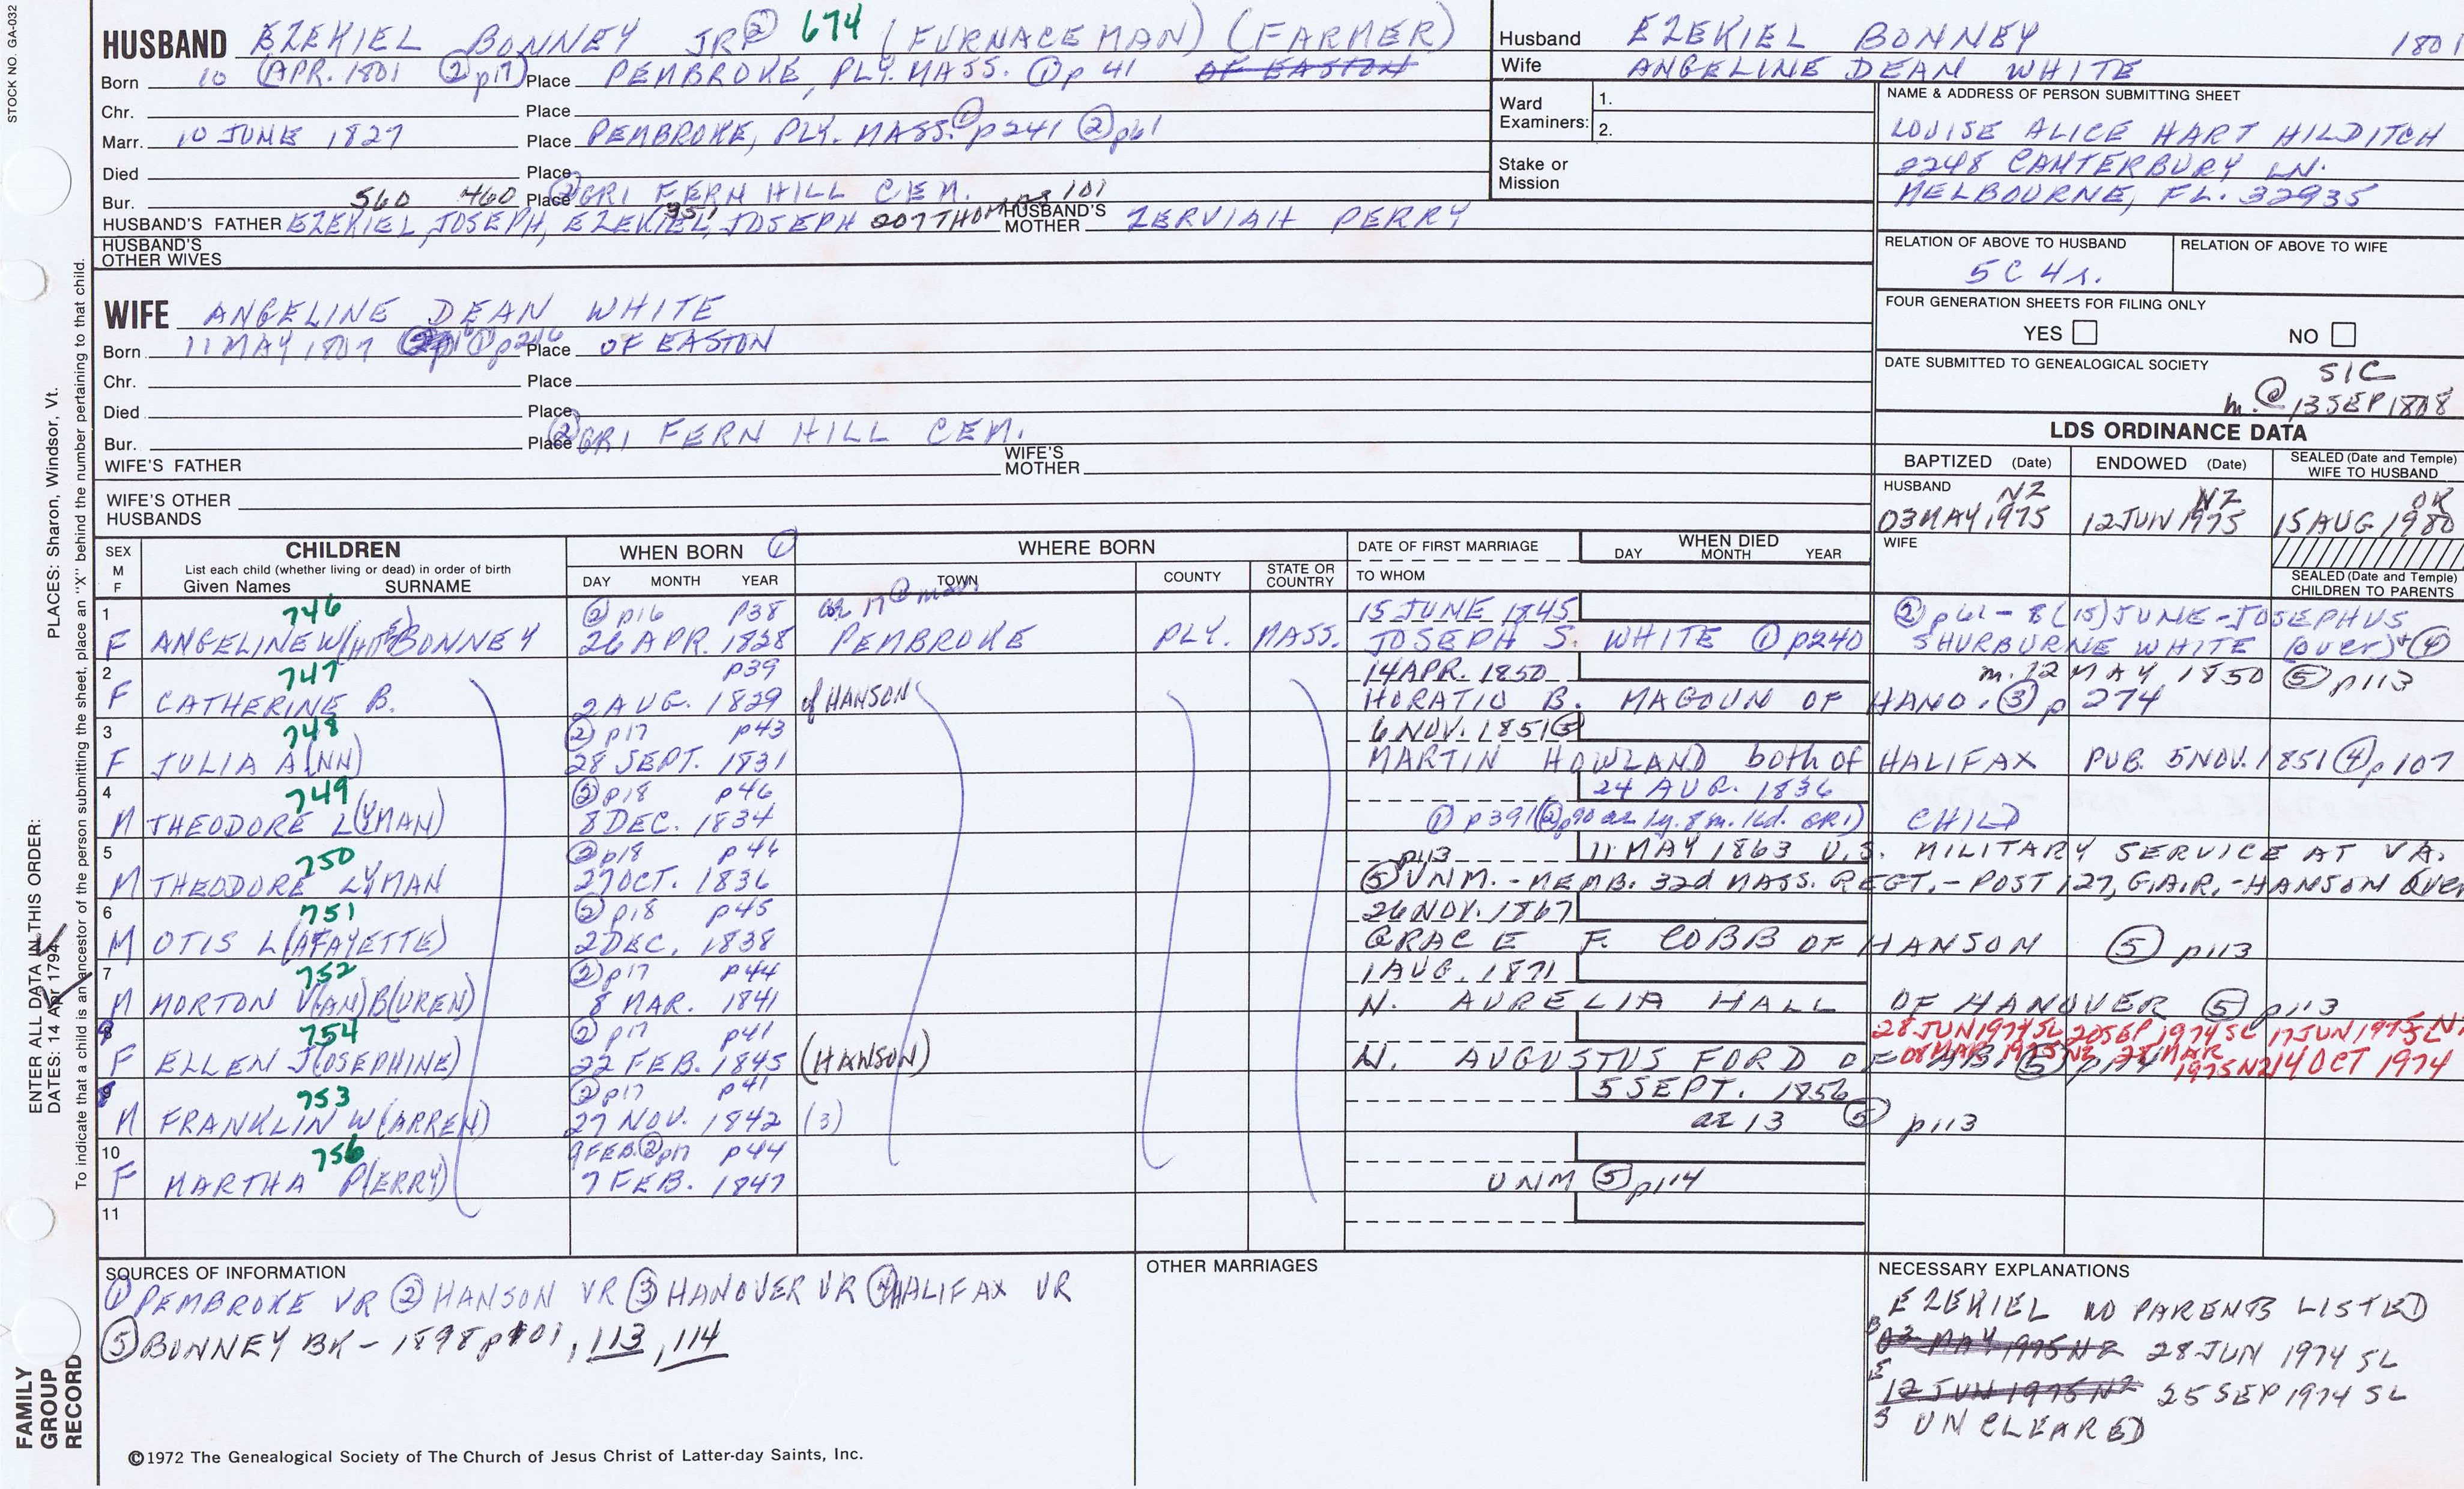 STOCK NO. GA-032
HUSBAND EZEKIEL BONNEY JR ② 674 (FURNACE MAN) (FARMER)
Born 10 (APR. 1801 ② p17) Place PEMBROKE, PLY. MASS. ① p 41 OF EASTON
Chr. Place
Marr. 10 JUNE 1827 Place PEMBROKE, PLY. MASS. ① p241 ② p61
Died Place
Bur. 560 460 Place ② GR1 FERN HILL CEM. 101
HUSBAND'S FATHER EZEKIEL, JOSEPH, EZEKIEL, 351 JOSEPH 207 THOMAS HUSBAND'S MOTHER ZERVIAH PERRY
HUSBAND'S OTHER WIVES
Husband EZEKIEL BONNEY 1801
Wife ANGELINE DEAN WHITE
Ward Examiners: 1.
2.
Stake or Mission
NAME & ADDRESS OF PERSON SUBMITTING SHEET
LOUISE ALICE HART HILDITCH
2248 CANTERBURY LN.
MELBOURNE, FL. 32935
RELATION OF ABOVE TO HUSBAND RELATION OF ABOVE TO WIFE
5C 4r.
FOUR GENERATION SHEETS FOR FILING ONLY
YES NO
DATE SUBMITTED TO GENEALOGICAL SOCIETY
SIC
m. @ 13 SEP
WIFE ANGELINE DEAN WHITE
Born 11 MAY 1807 ① p216 Place OF EASTON
Chr. Place
Died Place
Bur. Place ② GR1 FERN HILL CEM.
WIFE'S FATHER WIFE'S MOTHER
WIFE'S OTHER HUSBANDS
LDS ORDINANCE DATA
BAPTIZED (Date) ENDOWED (Date) SEALED (Date and Temple) WIFE TO HUSBAND
HUSBAND NZ NZ OK
03 MAY 1975 12 JUN 1975 15 AUG 1980
WIFE
SEALED (Date and Temple) CHILDREN TO PARENTS
SEX M F CHILDREN List each child (whether living or dead) in order of birth Given Names SURNAME
WHEN BORN ① DAY MONTH YEAR
WHERE BORN TOWN COUNTY STATE OR COUNTRY
DATE OF FIRST MARRIAGE TO WHOM
WHEN DIED DAY MONTH YEAR
1 746 ② p16 p38 ae 17 @ marr 15 JUNE 1845 ② p61 - 8(15) JUNE - JOSEPHUS
F ANGELINE W(HITE) BONNEY 26 APR. 1828 PEMBROKE PLY. MASS. JOSEPH S. WHITE ① p240 SHURBURNE WHITE (over) + ④
2 747 p39 14 APR. 1850 m. 12 MAY 1850 ⑤ p113
F CATHERINE B. 2 AUG. 1829 of HANSON HORATIO B. MAGOUN OF HANO. ③ p 274
3 748 ② p17 p43 6 NOV. 1851 ⑤
F JULIA A(NN) 28 SEPT. 1831 MARTIN HOWLAND both of HALIFAX PUB. 5 NOV. 1851 ④ p107
4 749 ② p18 p46 24 AUG. 1836
M THEODORE L(YMAN) 8 DEC. 1834 ① p391 (② p90 ae 1y. 8m. 1cd. GR1) CHILD
5 750 ② p18 p46 p113 11 MAY 1863 U.S. MILITARY SERVICE AT VA.
M THEODORE LYMAN 27 OCT. 1836 ⑤ UNM. - MEMB. 32d MASS. REGT. - POST 127, G.A.R. - HANSON Over
6 751 ② p18 p45 26 NOV. 1867
M OTIS L(AFAYETTE) 2 DEC. 1838 GRACE F. COBB OF HANSON ⑤ p113
7 752 ② p17 p44 1 AUG. 1871
M MORTON V(AN) B(UREN) 8 MAR. 1841 N. AURELIA HALL OF HANOVER ⑤ p113
8 754 ② p17 p41 28 JUN 1974 SL 20 SEP 1974 SL 17 JUN 1975 SL
F ELLEN J(OSEPHINE) 22 FEB. 1845 (HANSON) N. AUGUSTUS FORD OF AB. ⑤ p114 08 MAR 1975 NZ 25 MAR 1975 NZ 14 OCT 1974
9 753 ② p17 p41 5 SEPT. 1856
M FRANKLIN W(ARREN) 27 NOV. 1842 (3) ae 13 ⑤ p113
10 756 9 FEB. ② p17 p44
F MARTHA P(ERRY) 7 FEB. 1847 UNM ⑤ p114
11
SOURCES OF INFORMATION
① PEMBROKE VR ② HANSON VR ③ HANOVER VR ④ HALIFAX VR
⑤ BONNEY BK - 1898 p101, 113, 114
OTHER MARRIAGES
NECESSARY EXPLANATIONS
EZEKIEL NO PARENTS LISTED
B 03 MAY 1975 NZ 28 JUN 1974 SL
E 12 JUN 1975 NZ 25 SEP 1974 SL
S UNCLEARED
ENTER ALL DATA IN THIS ORDER:
DATES: 14 Apr 1794
PLACES: Sharon, Windsor, Vt.
To indicate that a child is an ancestor of the person submitting the sheet, place an "X" behind the number pertaining to that child.
FAMILY GROUP RECORD
©1972 The Genealogical Society of The Church of Jesus Christ of Latter-day Saints, Inc.